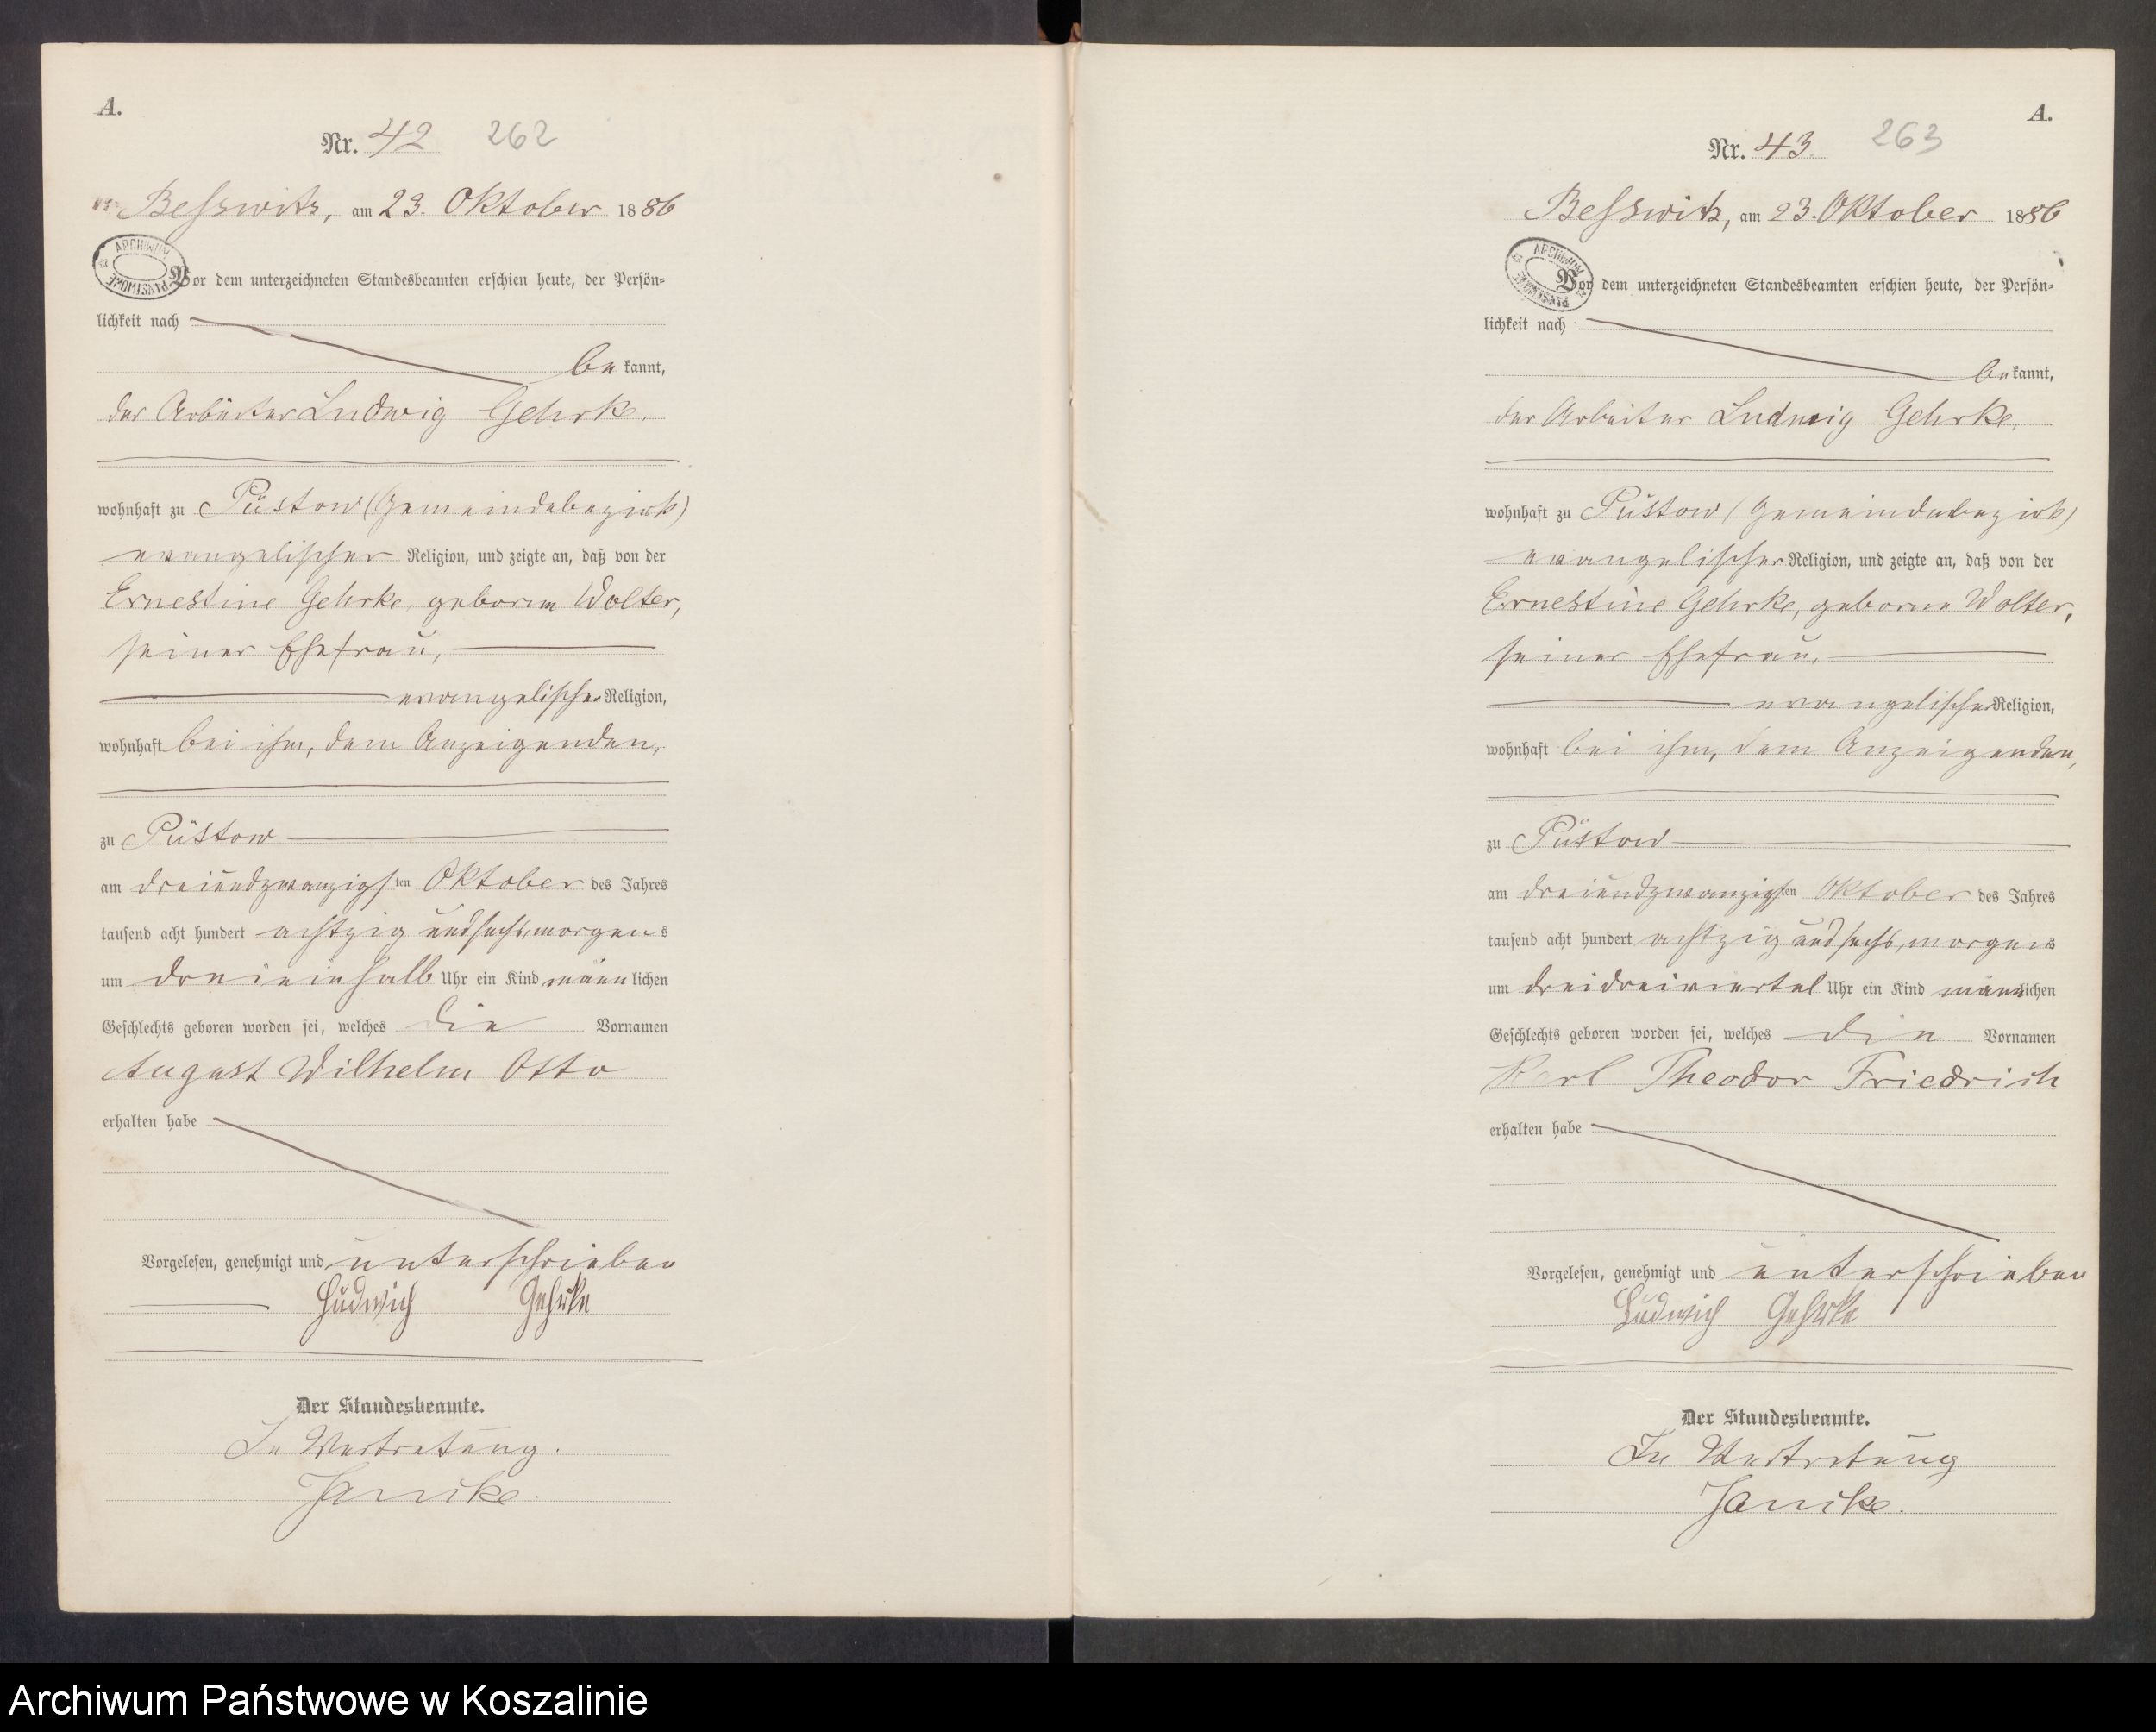 A.
Nr. 42 262
Besswitz, am 23. Oktober 1886
ARCHIWUM PAŃSTWOWE
Vor dem unterzeichneten Standesbeamten erschien heute, der Persön-
lichkeit nach
be kannt,
der Arbeiter Ludwig Gehrke,
wohnhaft zu Püstow (Gemeindebezirk)
evangelischer Religion, und zeigte an, daß von der
Ernestine Gehrke, geborne Wolter,
seiner Ehefrau,
evangelischer Religion,
wohnhaft bei ihm, dem Anzeigenden,
zu Püstow
am dreiundzwanzigsten Oktober des Jahres
tausend acht hundert achtzig und sechs, morgens
um dreieinhalb Uhr ein Kind männlichen
Geschlechts geboren worden sei, welches die Vornamen
August Wilhelm Otto
erhalten habe
Vorgelesen, genehmigt und unterschrieben
Ludwich Gehrke
Der Standesbeamte.
In Vertretung.
Janike.
A.
Nr. 43. 263
Besswitz, am 23. Oktober 1886
ARCHIWUM PAŃSTWOWE
Vor dem unterzeichneten Standesbeamten erschien heute, der Persön-
lichkeit nach
be kannt,
der Arbeiter Ludwig Gehrke,
wohnhaft zu Püstow (Gemeindebezirk)
evangelischer Religion, und zeigte an, daß von der
Ernestine Gehrke, geborne Wolter,
seiner Ehefrau,
evangelischer Religion,
wohnhaft bei ihm, dem Anzeigenden,
zu Püstow
am dreiundzwanzigsten Oktober des Jahres
tausend acht hundert achtzig und sechs, morgens
um dreidreiviertel Uhr ein Kind männlichen
Geschlechts geboren worden sei, welches die Vornamen
Karl Theodor Friedrich
erhalten habe
Vorgelesen, genehmigt und unterschrieben
Ludwich Gehrke
Der Standesbeamte.
In Vertretung
Janike.
Archiwum Państwowe w Koszalinie